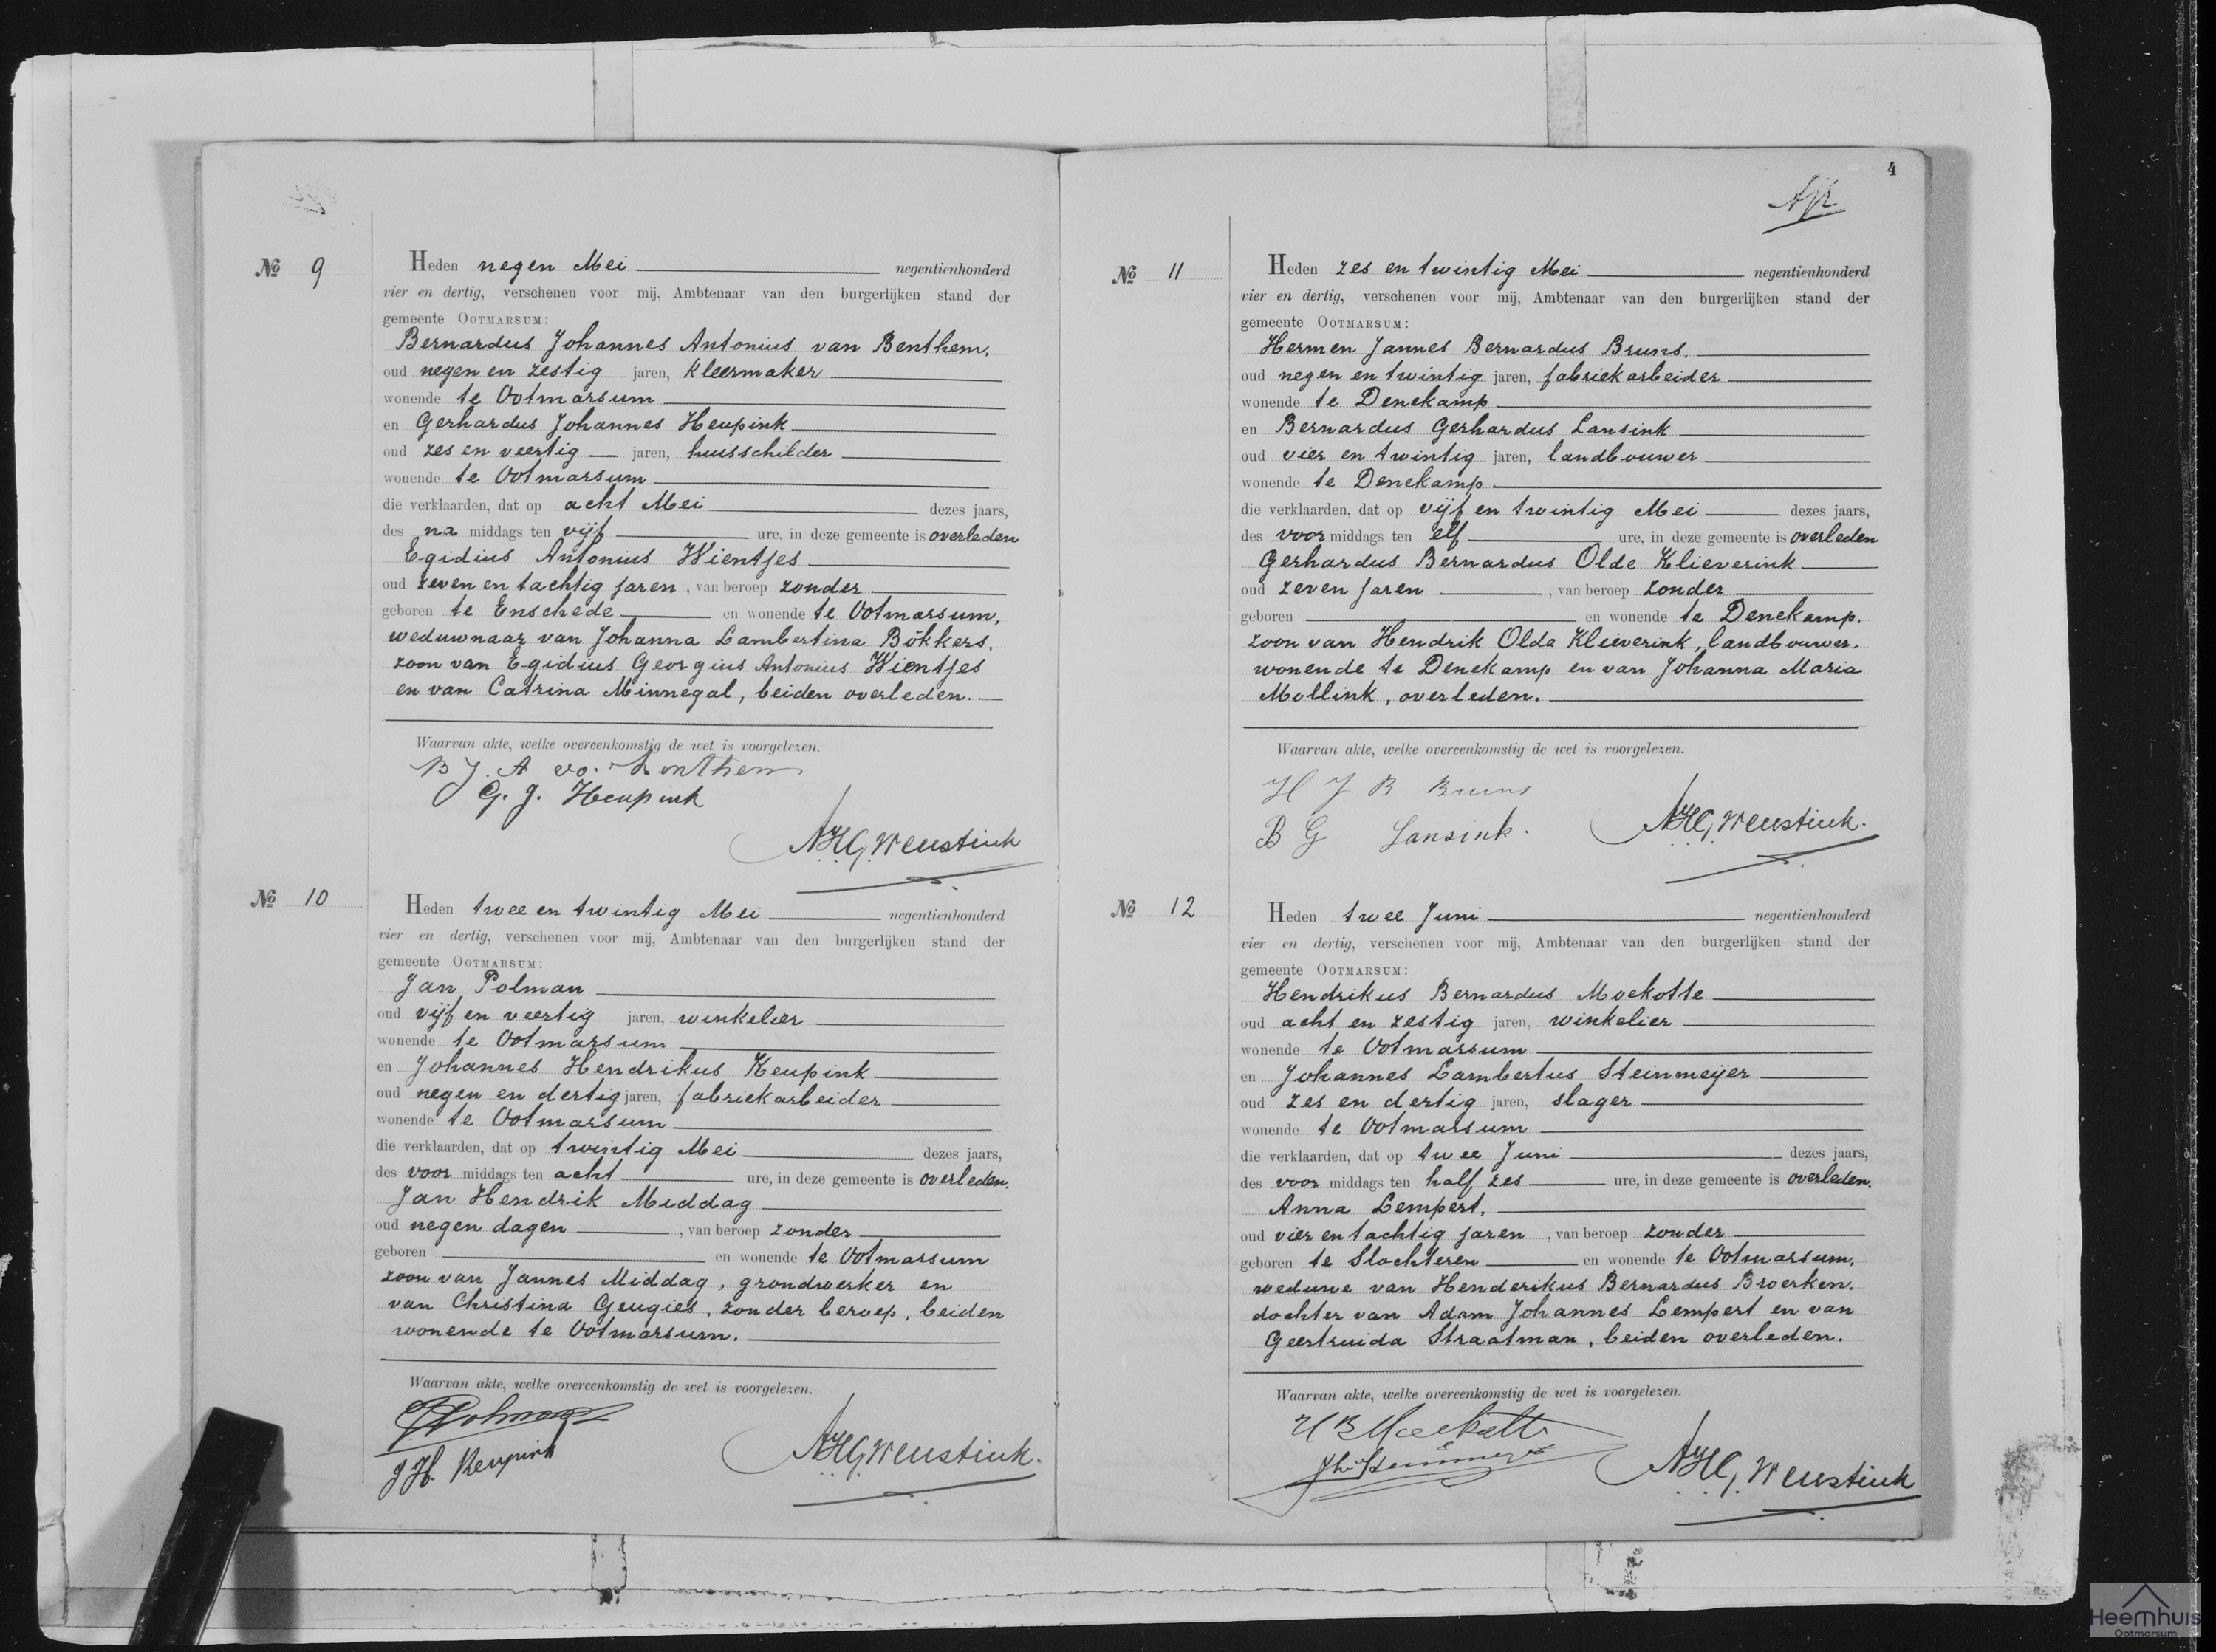 № 9
Heden negen Mei negentienhonderd
vier en dertig, verschenen voor mij, Ambtenaar van den burgerlijken stand der
gemeente OOTMARSUM:
Bernardus Johannes Antonius van Benthem.
oud negen en zestig jaren, kleermaker
wonende te Ootmarsum
en Gerhardus Johannes Heupink
oud zes en veertig jaren, huisschilder
wonende te Ootmarsum
die verklaarden, dat op acht Mei dezes jaars,
des na middags ten vijf ure, in deze gemeente is overleden
Egidius Antonius Wientjes
oud zeven en tachtig jaren, van beroep zonder
geboren te Enschede en wonende te Ootmarsum,
weduwnaar van Johanna Lambertina Bökkers.
zoon van Egidius Georgius Antonius Wientjes
en van Catrina Minnegal, beiden overleden.
Waarvan akte, welke overeenkomstig de wet is voorgelezen.
B J. A v. Benthem
G. J. Heupink
AHG Weustink
№ 10
Heden twee en twintig Mei negentienhonderd
vier en dertig, verschenen voor mij, Ambtenaar van den burgerlijken stand der
gemeente OOTMARSUM:
Jan Polman
oud vijf en veertig jaren, winkelier
wonende te Ootmarsum
en Johannes Hendrikus Keupink
oud negen en dertig jaren, fabriekarbeider
wonende te Ootmarsum
die verklaarden, dat op twintig Mei dezes jaars,
des voor middags ten acht ure, in deze gemeente is overleden.
Jan Hendrik Middag
oud negen dagen, van beroep zonder
geboren en wonende te Ootmarsum
zoon van Jannes Middag, grondwerker en
van Christina Geugies, zonder beroep, beiden
wonende te Ootmarsum.
Waarvan akte, welke overeenkomstig de wet is voorgelezen.
J Polman
J H. Keupink
AHG Weustink.
4
№ 11
Heden zes en twintig Mei negentienhonderd
vier en dertig, verschenen voor mij, Ambtenaar van den burgerlijken stand der
gemeente OOTMARSUM:
Hermen Jannes Bernardus Bruns.
oud negen en twintig jaren, fabriekarbeider
wonende te Denekamp
en Bernardus Gerhardus Lansink
oud vier en twintig jaren, landbouwer
wonende te Denekamp
die verklaarden, dat op vijf en twintig Mei dezes jaars,
des voor middags ten elf ure, in deze gemeente is overleden
Gerhardus Bernardus Olde Klieverink
oud zeven jaren, van beroep zonder
geboren en wonende te Denekamp.
zoon van Hendrik Olde Klieverink, landbouwer.
wonende te Denekamp en van Johanna Maria
Mollink, overleden.
Waarvan akte, welke overeenkomstig de wet is voorgelezen.
H J B Bruns
B G Lansink.
AHG Weustink.
№ 12
Heden twee Juni negentienhonderd
vier en dertig, verschenen voor mij, Ambtenaar van den burgerlijken stand der
gemeente OOTMARSUM:
Hendrikus Bernardus Moekotte
oud acht en zestig jaren, winkelier
wonende te Ootmarsum
en Johannes Lambertus Steinmeijer
oud zes en dertig jaren, slager
wonende te Ootmarsum
die verklaarden, dat op twee Juni dezes jaars,
des voor middags ten half zes ure, in deze gemeente is overleden.
Anna Lempert.
oud vier en tachtig jaren, van beroep zonder
geboren te Slochteren en wonende te Ootmarsum,
weduwe van Henderikus Bernardus Broerken.
dochter van Adam Johannes Lempert en van
Geertruida Straatman, beiden overleden.
Waarvan akte, welke overeenkomstig de wet is voorgelezen.
H B Moekotte
AHG Weustink
Heemhuis
Ootmarsum